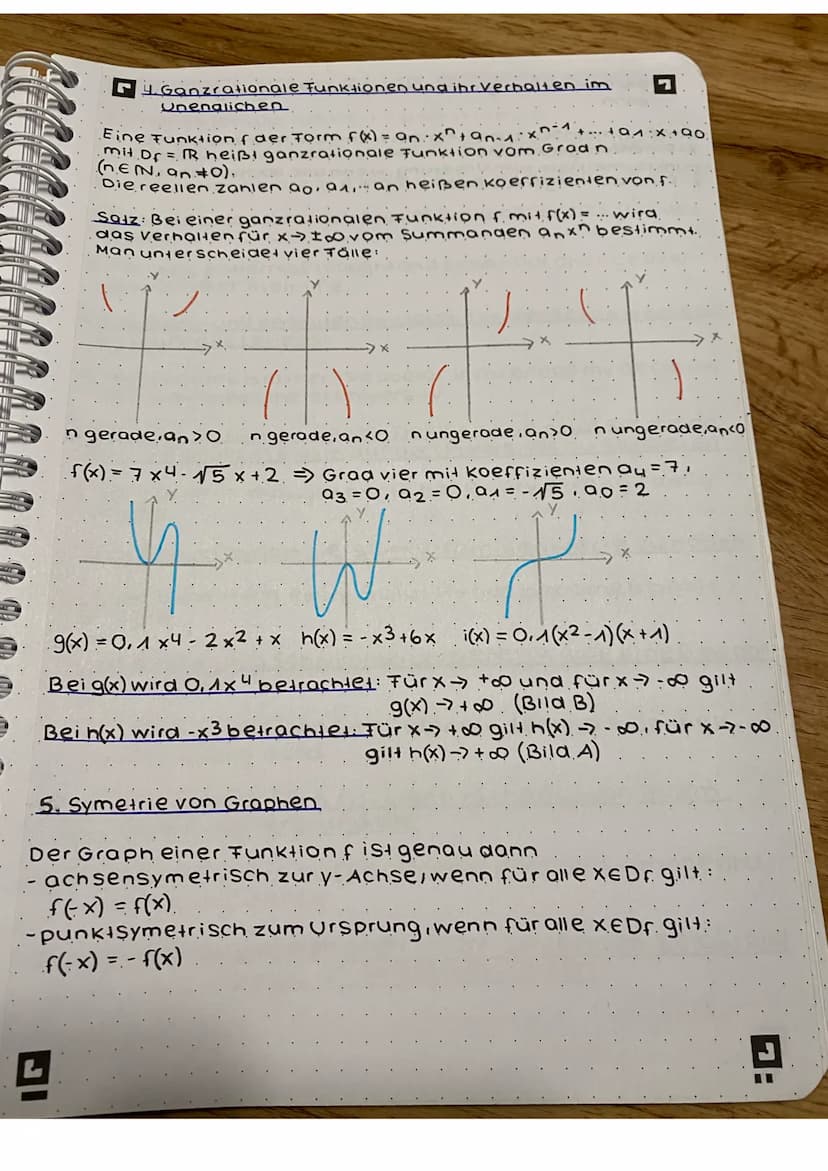 4. Ganzrationale Funktionen und ihr Verhalten im
unendlichen
Eine Funktion f der Form f(x) = an · xⁿ + an-1 · xⁿ⁻¹ + ... + a1 · x + a0
mit Df = ℝ heißt ganzrationale Funktion vom Grad n
(n∈ℕ, an ≠ 0).
Die reellen zahlen a0, a1, ... an heißen Koeffizienten von f.
Satz: Bei einer ganzrationalen Funktion f mit f(x) = ... wird
das Verhalten für x → ±∞ vom Summanden anxⁿ bestimmt.
Man unterscheidet vier Fälle:
y y y y
x x x x
n gerade, an > 0 n gerade, an < 0 n ungerade, an > 0 n ungerade, an < 0
f(x) = 7x⁴ - √5 x + 2 ⇒ Grad vier mit Koeffizienten a4 = 7,
a3 = 0, a2 = 0, a1 = -√5, a0 = 2
y y y
x x x
g(x) = 0,1x⁴ - 2x² + x h(x) = -x³ + 6x i(x) = 0,1(x² - 1)(x + 1)
Bei g(x) wird 0,1x⁴ betrachtet: Für x → +∞ und für x → -∞ gilt
g(x) → +∞ (Bild B)
Bei h(x) wird -x³ betrachtet: Für x → +∞ gilt h(x) → -∞, für x → -∞
gilt h(x) → +∞ (Bild A)
5. Symetrie von Graphen
Der Graph einer Funktion f ist genau dann
- achsensymetrisch zur y-Achse, wenn für alle x∈Df gilt:
f(-x) = f(x)
- punktsymetrisch zum Ursprung, wenn für alle x∈Df gilt:
f(-x) = - f(x)